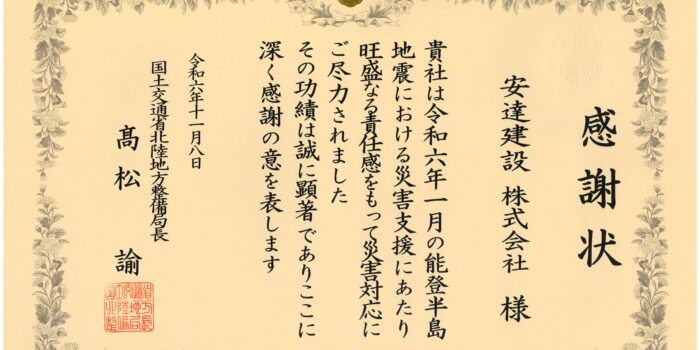 感謝状
安達建設 株式会社 様
貴社は令和六年一月の能登半島
地震における災害支援にあたり
旺盛なる責任感をもって災害対応に
ご尽力されました
その功績は誠に顕著でありここに
深く感謝の意を表します
令和六年十一月八日
国土交通省北陸地方整備局長
髙松 諭